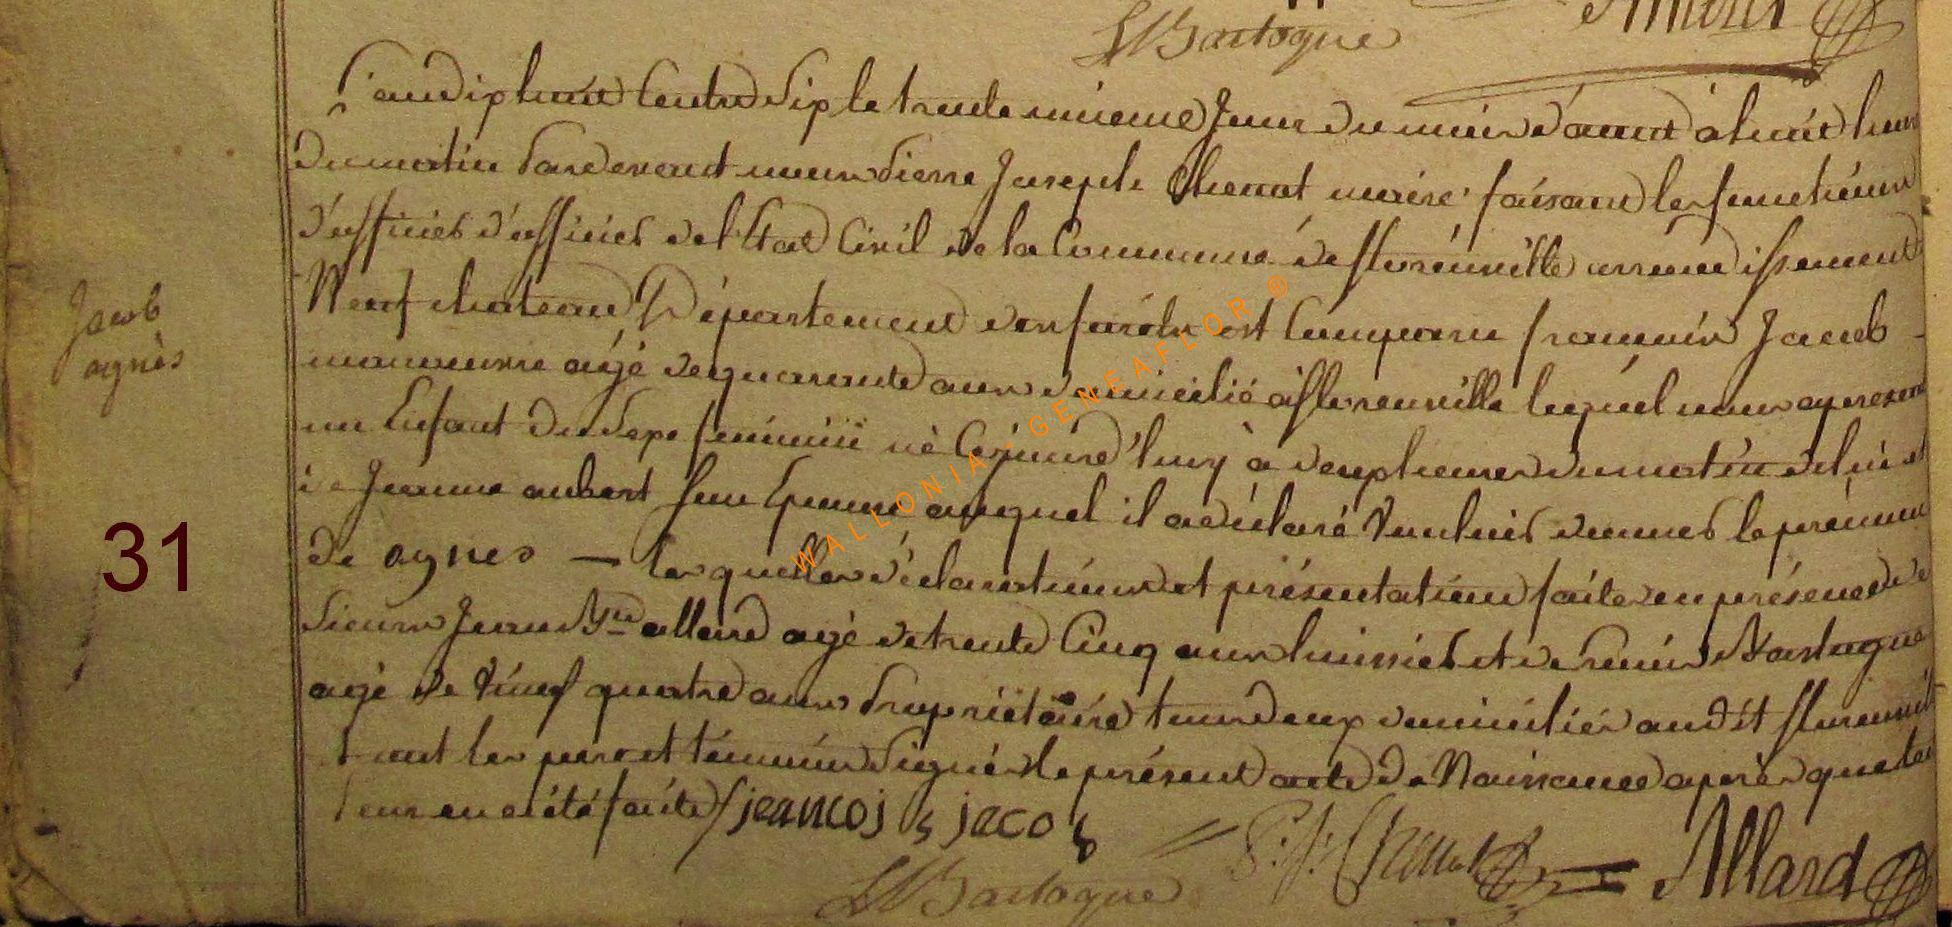 LBastogne
L'an dixhuit Centes Six le trente unieme Jour du mois d'aout à huit heures
du matin Pardevant nous Pierre Joseph maire faisant les fonctions
d'officies d'officies de l'Etat Civil de la Commune de florenville arrondissement
Neufchateau Département des forêts est Comparu françois Jacob
manoeuvre agé de quarante ans domicilié à florenville lequel nous a presenté
un Enfant du Sexe féminin né Cejourd'huy à deux heures du matin de lui et
de Jeanne aubert Son Epouse auquel il a déclaré Vouloir donner le prénom
de agnes — les quelles déclarations et présentation faites en présence de
Sieurs Jean Bte allard agé de trente Cinq ans huissier et de Bastogne
agé de Vingt quatre ans Propriétaire tous deux domiciliés audit florenville
ont les pere et témoins Signés le présent acte de Naissance après que lecture
leur en a été faite jeancois jacob
Jacob
agnès
31
LBastogne P: J: Chenot Allard
WALLONIA - GENEAFLOR ®